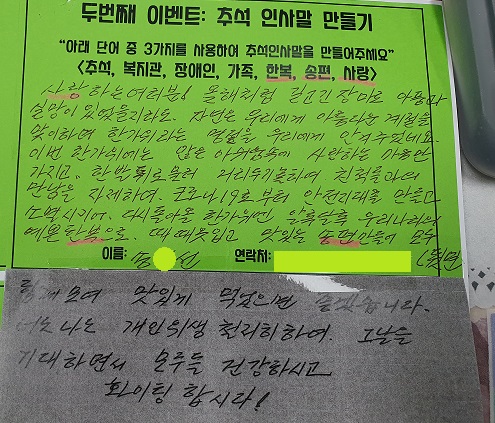 두번째 이벤트: 추석 인사말 만들기
"아래 단어 중 3가지를 사용하여 추석인사말을 만들어주세요"
<추석, 복지관, 장애인, 가족, 한복, 송편, 사랑>
사랑하는 여러분! 올해처럼 길고긴 장마로 아픔과
실망이 있었을지라도. 자연은 우리에게 아름다운 계절을
맞이하며 한가위라는 명절을 우리에게 안겨주었네요.
이번 한가위에는 많은 아쉬움속에 사랑하는 마음만
가지고. 한발 뒤로 물러 거리두기로하여 친척들과의
만남을 자제하여. 코로나19로 부터 안전지대를 만들고
다시 돌아올 한가위엔 우리나라의
예쁜한복으로. 때때옷입고 맛있는 송편 만들어 모두
이름: 연락처: (뒷면
모여 맛있게 먹었으면 좋겠습니다.
너도나도 개인위생 철저히하여. 그날을
기대하면서 모두들 건강하시고
화이팅 합시다!